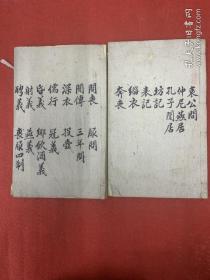 哀公問
仲尼燕居
孔子閒居
坊記
表記
緇衣
奔喪
問喪 服問
間傳 三年問
深衣 投壺
儒行 冠義
昏義 鄉飲酒義
射義 燕義
聘義 喪服四制